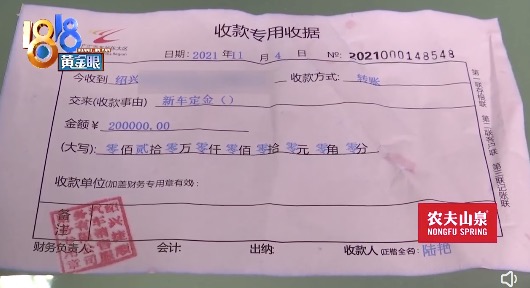 1818
黄金眼
收款专用收据
日期: 2021 年 11 月 4 日 №: 2021000148548
今收到 绍兴 收款方式: 转账
交来(收款事由) 新车定金()
金额¥ 200000.00
(大写): 零佰贰拾零万零仟零佰零拾零元零角零分
收款单位(加盖财务专用章有效):
备注
农夫山泉
NONGFU SPRING
财务负责人: 会计: 出纳: 收款人(正楷全名) 陆艳
第一联存根联 第二联客户联 第三联记账联